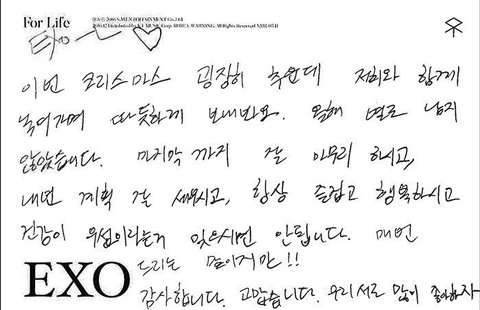 For Life
이번 크리스마스 굉장히 추운데 저희와 함께
녹여가며 따뜻하게 보내봐요. 올해 별로 남지
않았습니다. 마지막까지 잘 마무리 하시고,
내년 계획 잘 세우시고, 항상 즐겁고 행복하시고
건강이 우선이라는거 잊으시면 안됩니다. 매번
드리는 말이지만!!
EXO
감사합니다. 고맙습니다. 우리 서로 많이 좋아하자